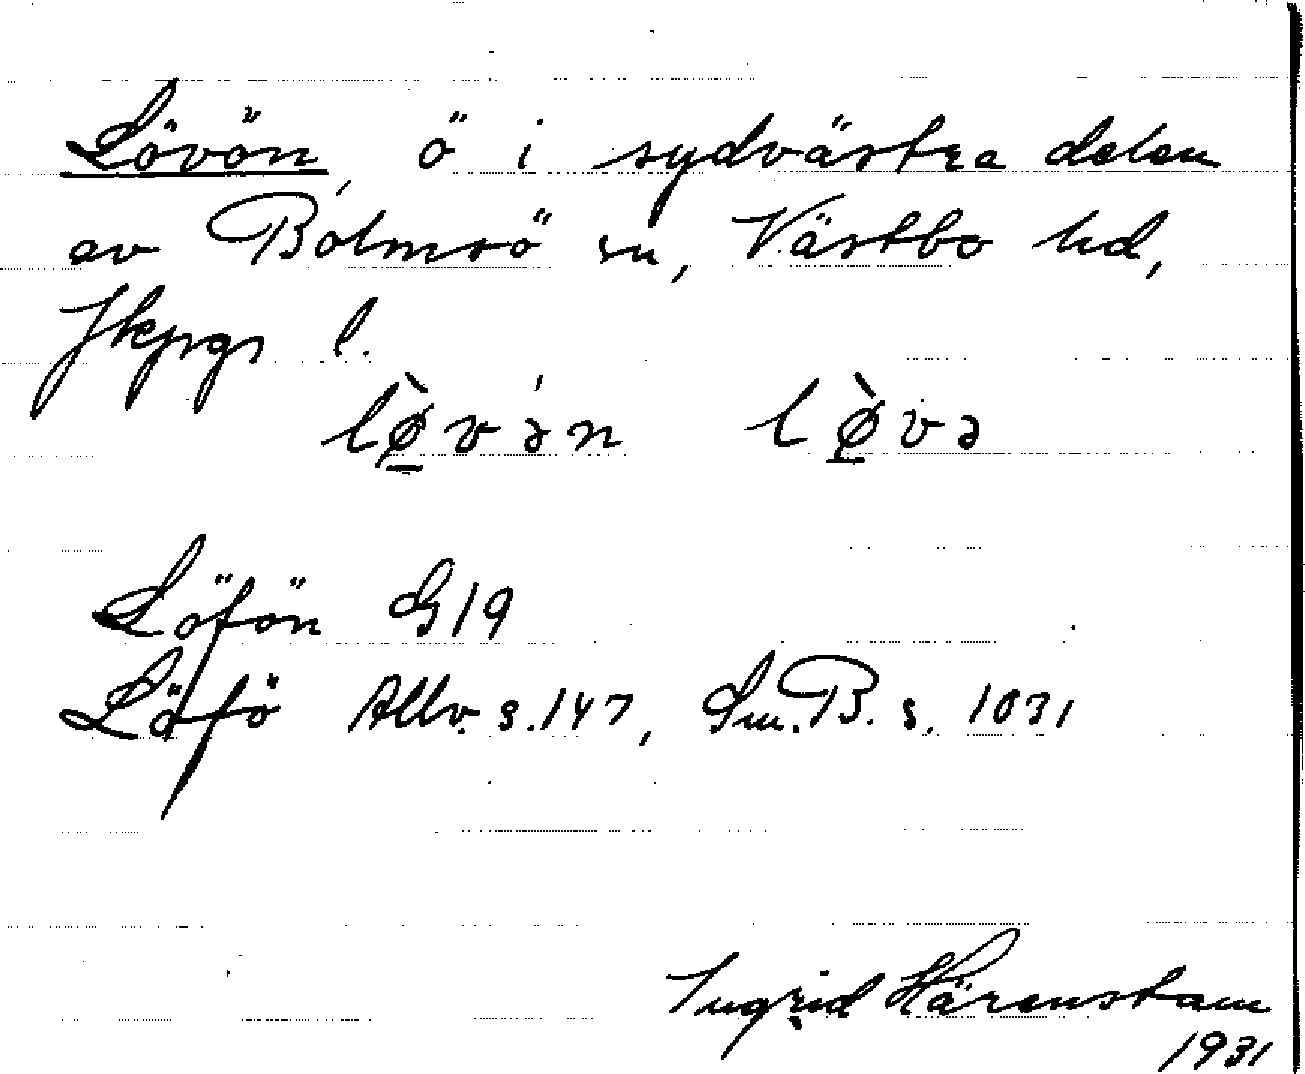 Lövön, ö i sydvästra delen
av Bolmsö sn, Västbo hd,
Jkpgs l.
lø̀vən lø̀və
Löfön G19
Löfö Allv. s. 147, Sm. B. s. 1031
Ingrid Härenstam
1931